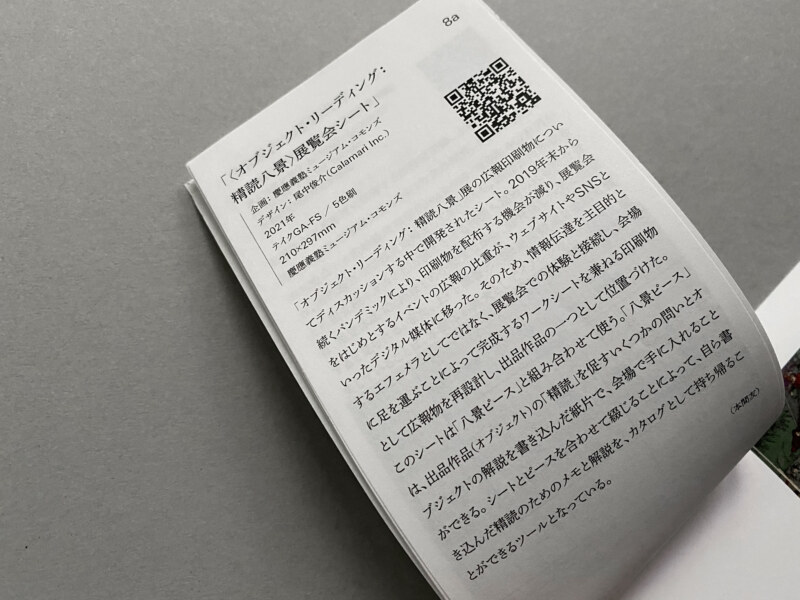 8a
「〈オブジェクト・リーディング：
精読八景〉展覧会シート」
企画：慶應義塾ミュージアム・コモンズ
デザイン：尾中俊介（Calamari Inc.）
2021年
テイクGA-FS / 5色刷
210×297mm
慶應義塾ミュージアム・コモンズ
「オブジェクト・リーディング：精読八景」展の広報印刷物につい
てディスカッションする中で開発されたシート。2019年末から
続くパンデミックにより、印刷物を配布する機会が減り、展覧会
をはじめとするイベントの広報の比重が、ウェブサイトやSNSと
いったデジタル媒体に移った。そのため、情報伝達を主目的と
するエフェメラとしてではなく、展覧会での体験と接続し、会場
に足を運ぶことによって完成するワークシートを兼ねる印刷物
として広報物を再設計し、出品作品の一つとして位置づけた。
このシートは「八景ピース」と組み合わせて使う。「八景ピース」
は、出品作品（オブジェクト）の「精読」を促すいくつかの問いとオ
ブジェクトの解説を書き込んだ紙片で、会場で手に入れること
ができる。シートとピースを合わせて綴じることによって、自ら書
き込んだ精読のためのメモと解説を、カタログとして持ち帰るこ
とができるツールとなっている。
（本間友）